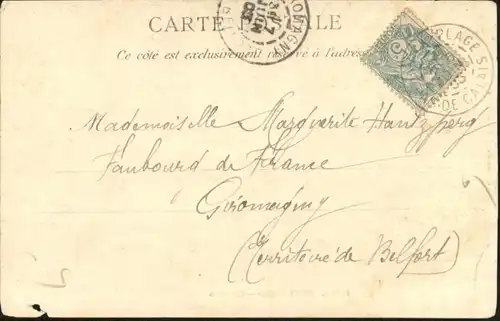 CARTE POSTALE
Ce côté est exclusivement réservé à l'adresse
Mademoiselle Marguerite Hantzberg
Faubourg de France
Giromagny
(Territoire de Belfort)